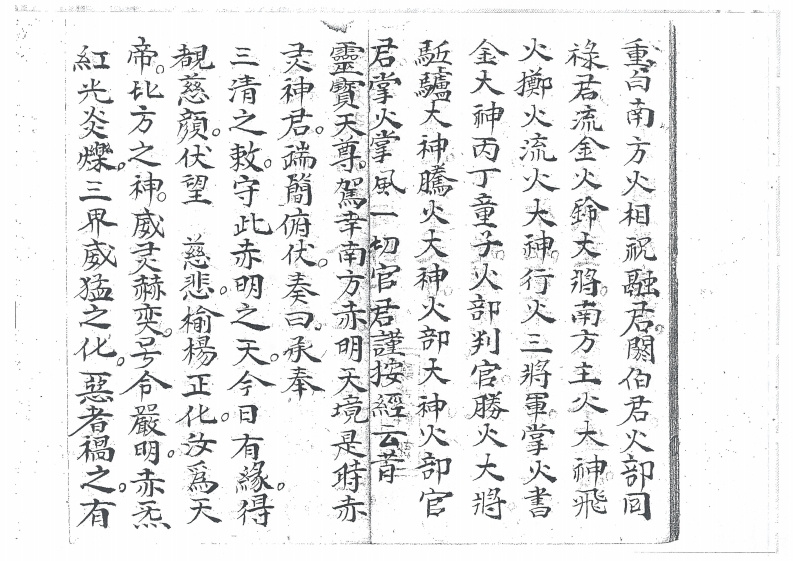 重白南方火相祝融君。閼伯君火部囘
祿君流金火鈴大將。南方主火大神。飛
火擲火流火大神。行火三將軍。掌火書
金大神丙丁童子。火部判官。勝火大將
大神騰火大神火部大神火部官
君掌火掌風一切官君謹按經云昔
靈寶天尊。駕幸南方赤明天境是時赤
灵神君。端簡俯伏。奏曰。承奉
三清之敕。守此赤明之天。今日有緣。得
覩慈顏。伏望 慈悲。榆楊正化。汝爲天
帝。比方之神。威灵赫奕。号令嚴明。赤炁
紅光炎爍。三界威猛之化。惡者禍之。有